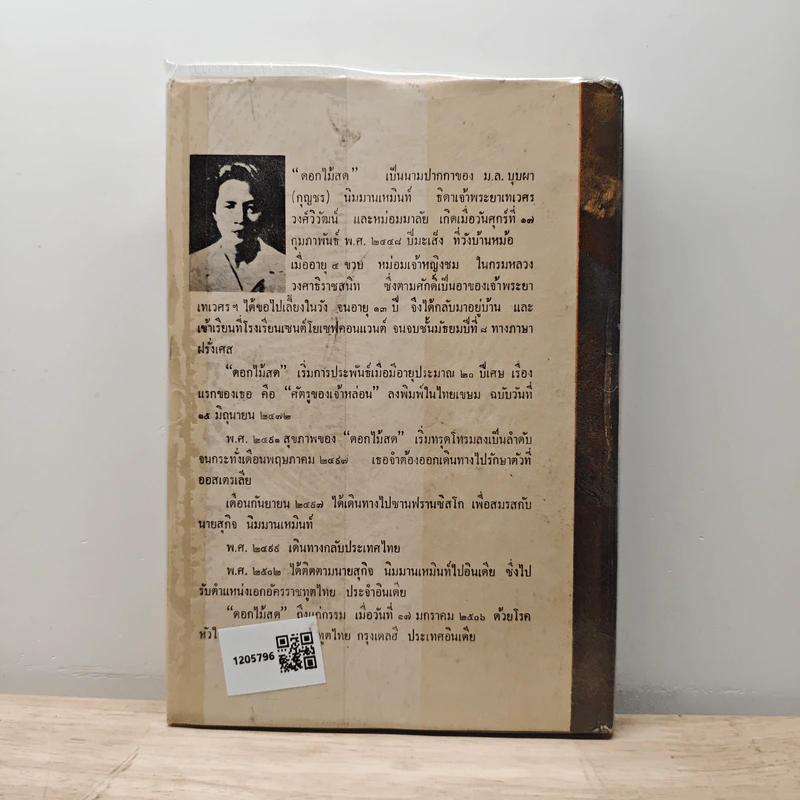 “ดอกไม้สด” เป็นนามปากกาของ ม.ล. บุบผา
(กุญชร) นิมมานเหมินท์ ธิดาเจ้าพระยาเทเวศร
วงศ์วิวัฒน์ และหม่อมมาลัย เกิดเมื่อวันศุกร์ที่ ๑๗
กุมภาพันธ์ พ.ศ. ๒๔๔๘ ปีมะเส็ง ที่วังบ้านหม้อ
เมื่ออายุ ๔ ขวบ หม่อมเจ้าหญิงชม ในกรมหลวง
วงศาธิราชสนิท ซึ่งตามศักดิ์เป็นอาของเจ้าพระยา
เทเวศรฯ ได้ขอไปเลี้ยงในวัง จนอายุ ๑๓ ปี จึงได้กลับมาอยู่บ้าน และ
เข้าเรียนที่โรงเรียนเซนต์โยเซฟคอนแวนต์ จนจบชั้นมัธยมปีที่ ๘ ทางภาษา
ฝรั่งเศส
“ดอกไม้สด” เริ่มการประพันธ์เมื่อมีอายุประมาณ ๒๐ ปีเศษ เรื่อง
แรกของเธอ คือ “ศัตรูของเจ้าหล่อน” ลงพิมพ์ในไทยเขษม ฉบับวันที่
๑๕ มิถุนายน ๒๔๗๒
พ.ศ. ๒๔๙๑ สุขภาพของ “ดอกไม้สด” เริ่มทรุดโทรมลงเป็นลำดับ
จนกระทั่งเดือนพฤษภาคม ๒๔๙๗ เธอจำต้องออกเดินทางไปรักษาตัวที่
ออสเตรเลีย
เดือนกันยายน ๒๔๙๗ ได้เดินทางไปซานฟรานซิสโก เพื่อสมรสกับ
นายสุกิจ นิมมานเหมินท์
พ.ศ. ๒๔๙๙ เดินทางกลับประเทศไทย
พ.ศ. ๒๕๐๒ ได้ติดตามนายสุกิจ นิมมานเหมินท์ไปอินเดีย ซึ่งไป
รับตำแหน่งเอกอัครราชทูตไทย ประจำอินเดีย
“ดอกไม้สด” ถึงแก่กรรม เมื่อวันที่ ๑๗ มกราคม ๒๕๐๖ ด้วยโรค
กรุงเดลฮี ประเทศอินเดีย
1205796